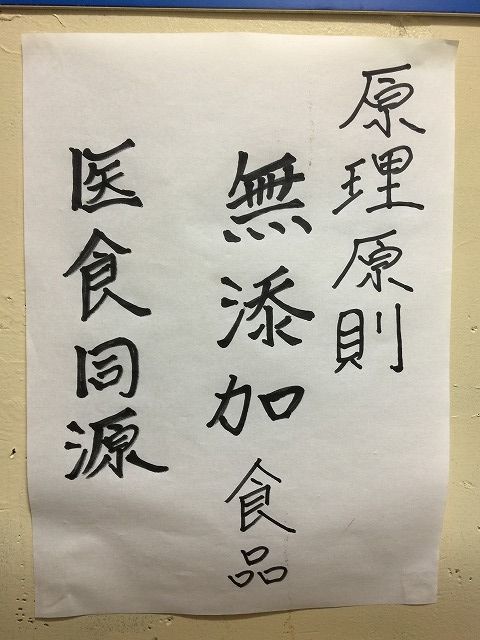 原理原則
無添加食品
医食同源